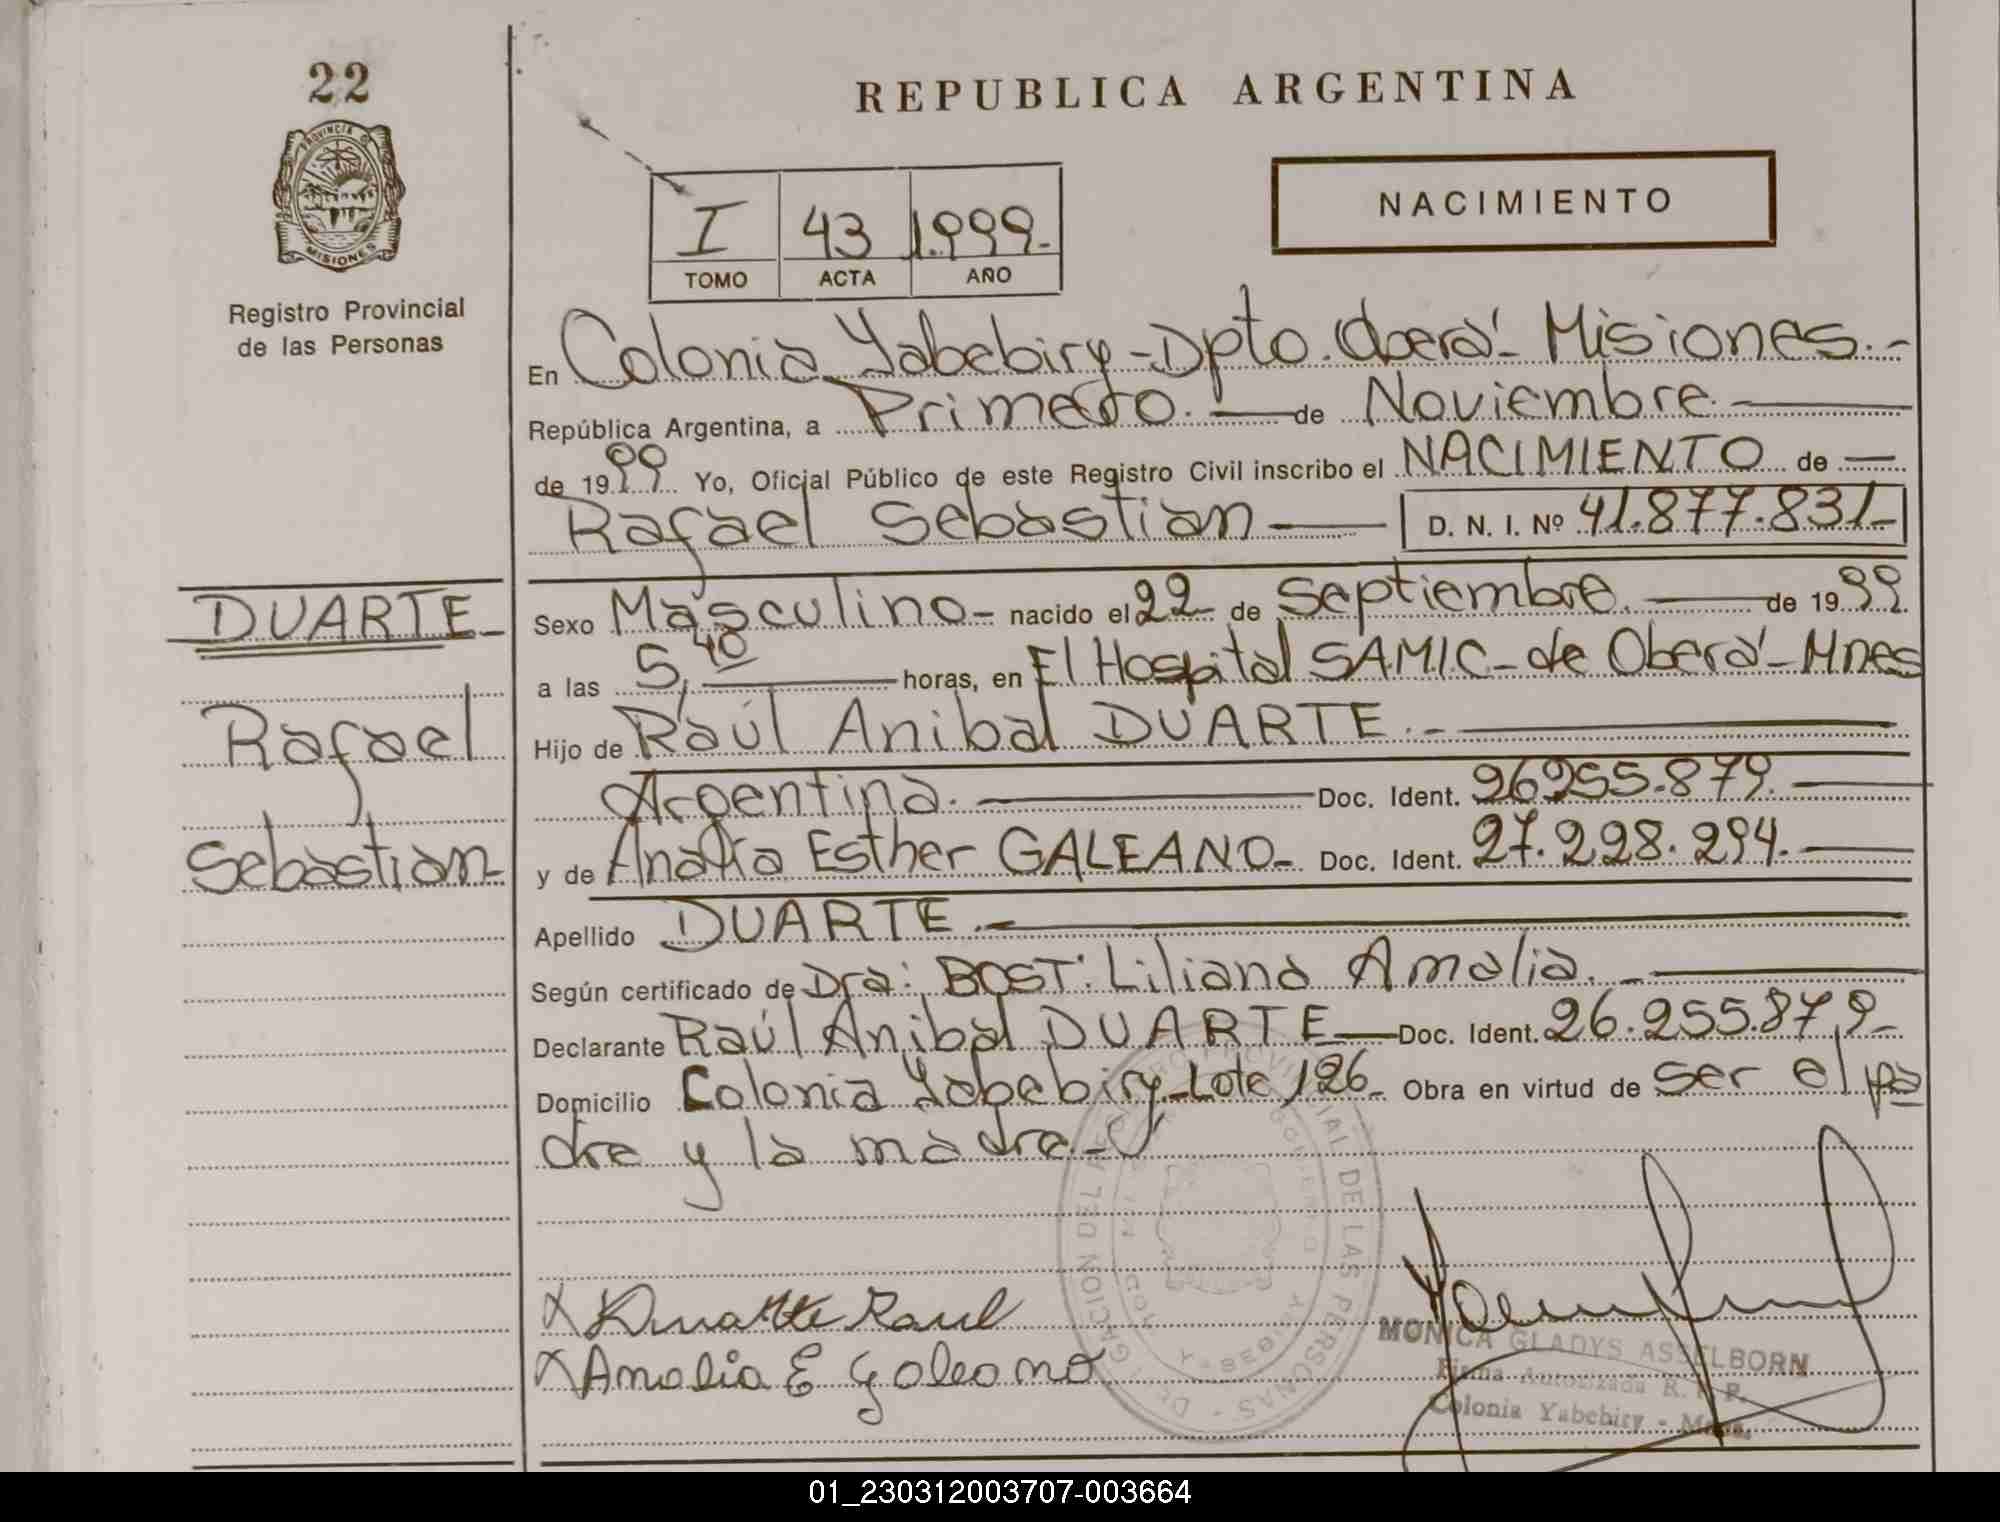 22
REPUBLICA ARGENTINA
PROVINCIA DE
MISIONES
Registro Provincial
de las Personas
I 43 1.999.-
TOMO ACTA AÑO
NACIMIENTO
En Colonia Yabebiry - Dpto. Oberá - Misiones.-
República Argentina, a Primero. — de Noviembre —
de 1999 Yo, Oficial Público de este Registro Civil inscribo el NACIMIENTO de —
Rafael Sebastian — D. N. I. Nº 41.877.831-
DUARTE-
Rafael
Sebastian-
Sexo Masculino - nacido el 22 de septiembre. — de 1999
a las 5,40 — horas, en El Hospital SAMIC - de Oberá - Mnes
Hijo de Raúl Anibal DUARTE.- —
Argentina. — Doc. Ident. 26255.879. —
y de Analía Esther GALEANO- Doc. Ident. 27.228.294. —
Apellido DUARTE.- —
Según certificado de Dra: BOST: Liliana Amalia. —
Declarante Raúl Anibal DUARTE — Doc. Ident. 26.255.879-
Domicilio Colonia Yabebiry - Lote 126- Obra en virtud de ser el pa
dre y la madre.-
X Duarte Raul
X Analia E Galeano
MONICA GLADYS ASSELBORN
Firma Autorizada R. P. P.
Colonia Yabebiry - Mnes.
01_230312003707-003664